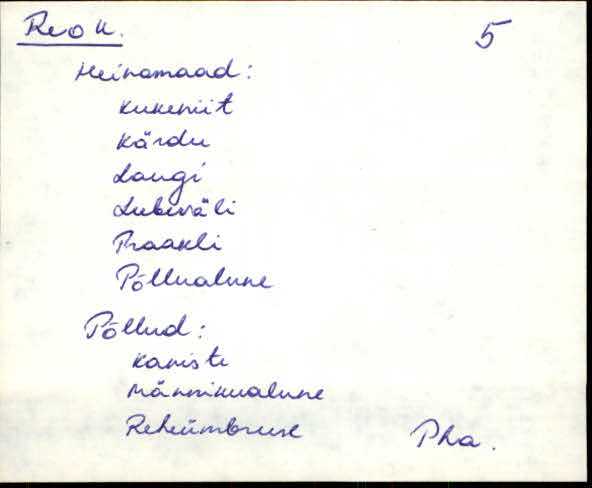 Reo k. 5
Heinamaad:
Kukeniit
Kärdu
Laugi
Lubiväli
Praakli
Põllualune
Põllud:
Kaniste
Männikualune
Reheümbruse Pha.